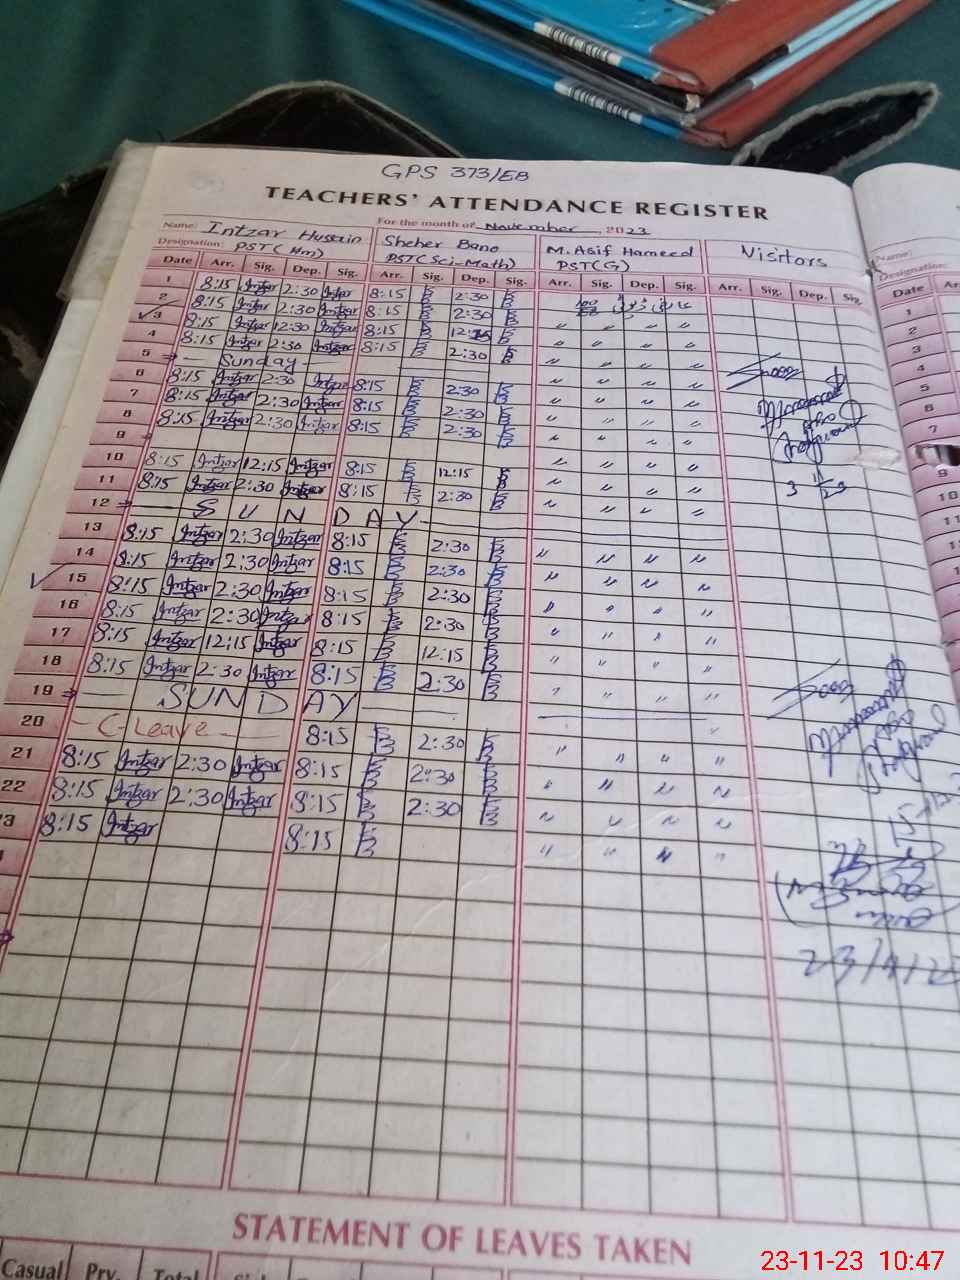 GPS 373/EB
TEACHERS' ATTENDANCE REGISTER
Name: Intzar Hussain For the month of November, 2023
Designation: PST(Hm) Sheher Bano PST(Sci-Math) M. Asif Hameed PST(G) Visitors
Name:
Designation:
Date Arr. Sig. Dep. Sig. Arr. Sig. Dep. Sig. Arr. Sig. Dep. Sig. Arr. Sig. Dep. Sig. Date
1 8:15 Intzar 2:30 Intzar 8:15 2:30 1
2 8:15 Intzar 2:30 Intzar 8:15 2:30 " " " " 2
3 8:15 Intzar 12:30 Intzar 8:15 12:15 " " " " 3
4 8:15 Intzar 2:30 Intzar 8:15 2:30 " " " " 4
5 Sunday 5
6 8:15 Intzar 2:30 Intzar 8:15 2:30 " " " " 6
7 8:15 Intzar 2:30 Intzar 8:15 2:30 " " " " 7
8 8:15 Intzar 2:30 Intzar 8:15 2:30 " " " "
9 9
10 8:15 Intzar 12:15 Intzar 8:15 12:15 " " " " 10
11 8:15 Intzar 2:30 Intzar 8:15 2:30 " " " " 3 11 23
12 SUNDAY
13 8:15 Intzar 2:30 Intzar 8:15 2:30 " " " "
14 8:15 Intzar 2:30 Intzar 8:15 2:30 " " " "
15 8:15 Intzar 2:30 Intzar 8:15 2:30 " " " "
16 8:15 Intzar 2:30 Intzar 8:15 2:30 " " " "
17 8:15 Intzar 12:15 Intzar 8:15 12:15 " " " "
18 8:15 Intzar 2:30 Intzar 8:15 2:30 " " " "
19 SUNDAY
20 C-Leave 8:15 2:30 " " " "
21 8:15 Intzar 2:30 Intzar 8:15 2:30 " " " "
22 8:15 Intzar 2:30 Intzar 8:15 2:30 " " " "
8:15 Intzar 8:15 " " " "
STATEMENT OF LEAVES TAKEN
Casual Prv. Total
23-11-23 10:47